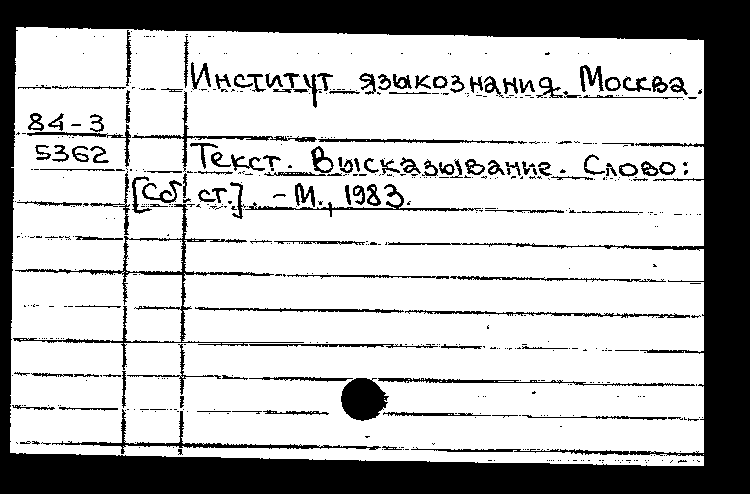 Институт языкознания. Москва.
84-3
5362
Текст. Высказывание. Слово:
[Сб. ст.]. - М., 1983.